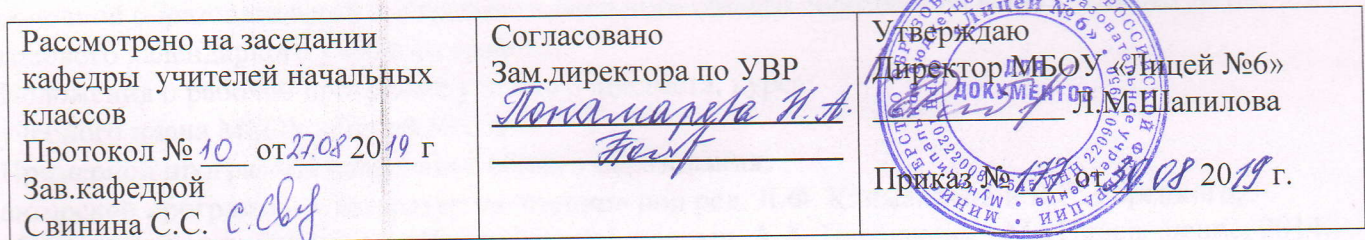 Рассмотрено на заседании
кафедры учителей начальных
классов
Протокол № 10 от 27.08 2019 г
Зав.кафедрой
Свинина С.С.
Согласовано
Зам.директора по УВР
Пономарева Н.А.
Утверждаю
Директор МБОУ «Лицей №6»
Л.М.Шапилова
Приказ № 172 от 30.08 2019 г.
«Лицей №6»
ДЛЯ
ДОКУМЕНТОВ